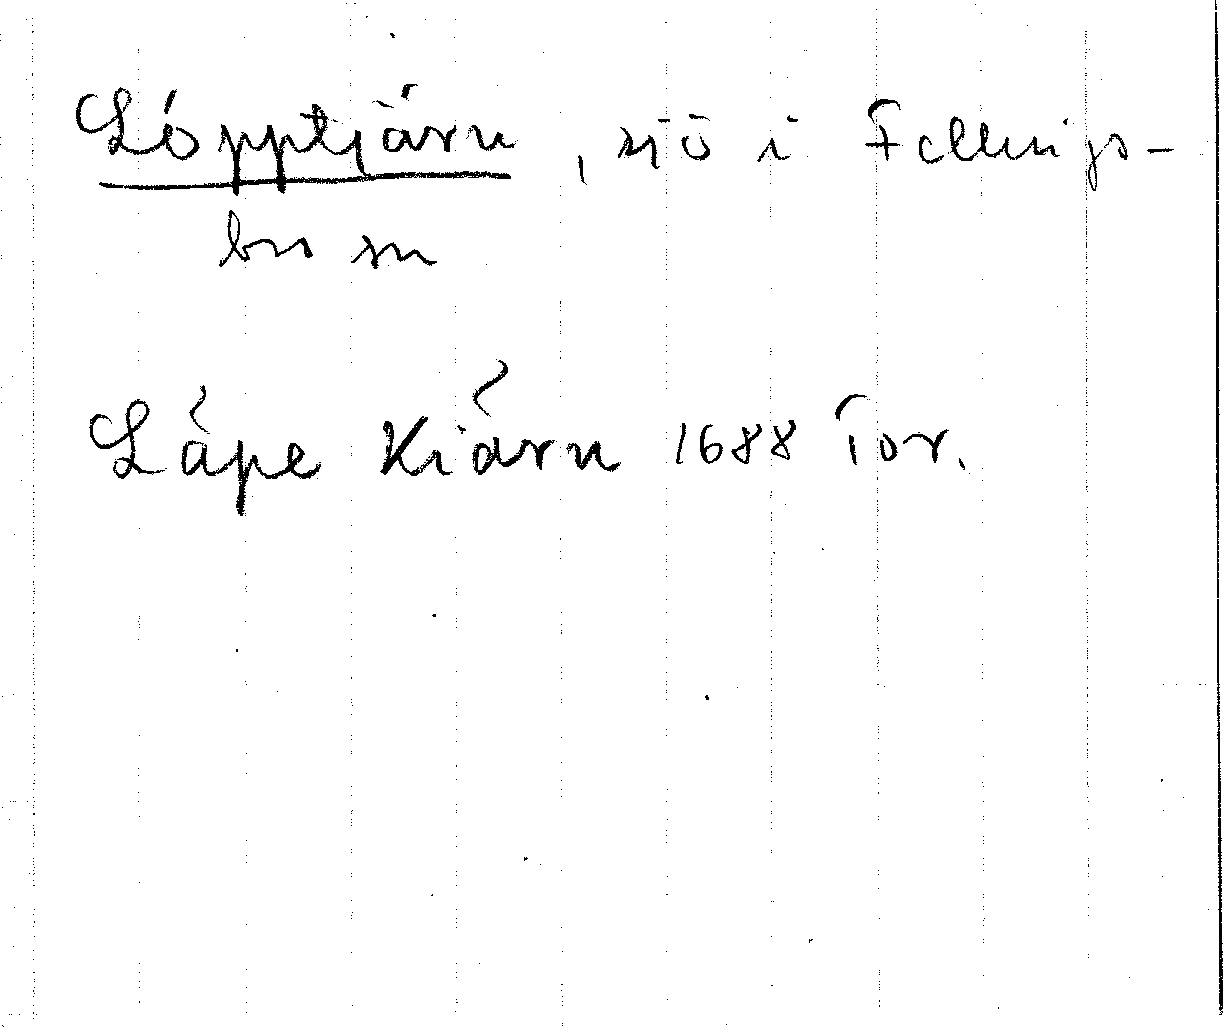 Löpptjärn, sjö i Fellings-
bro sn
Låpe Kiärn 1688 Tor.